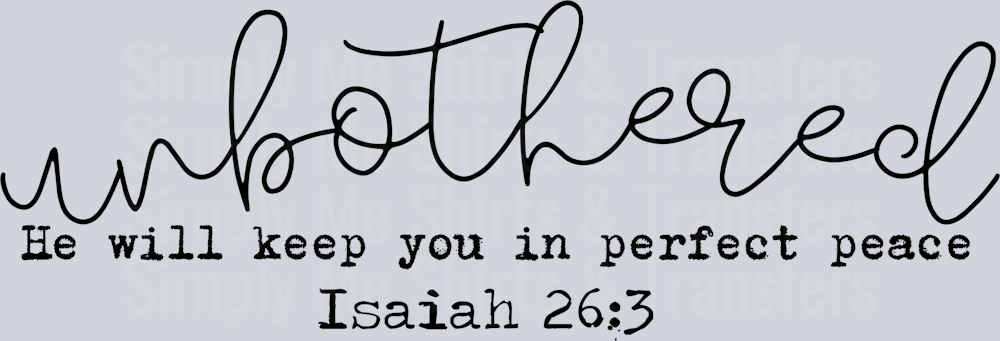 unbothered
He will keep you in perfect peace
Isaiah 26:3
Simply Me Shirts & Transfers
Simply Me Shirts & Transfers
Simply Me Shirts & Transfers
Simply Me Shirts & Transfers